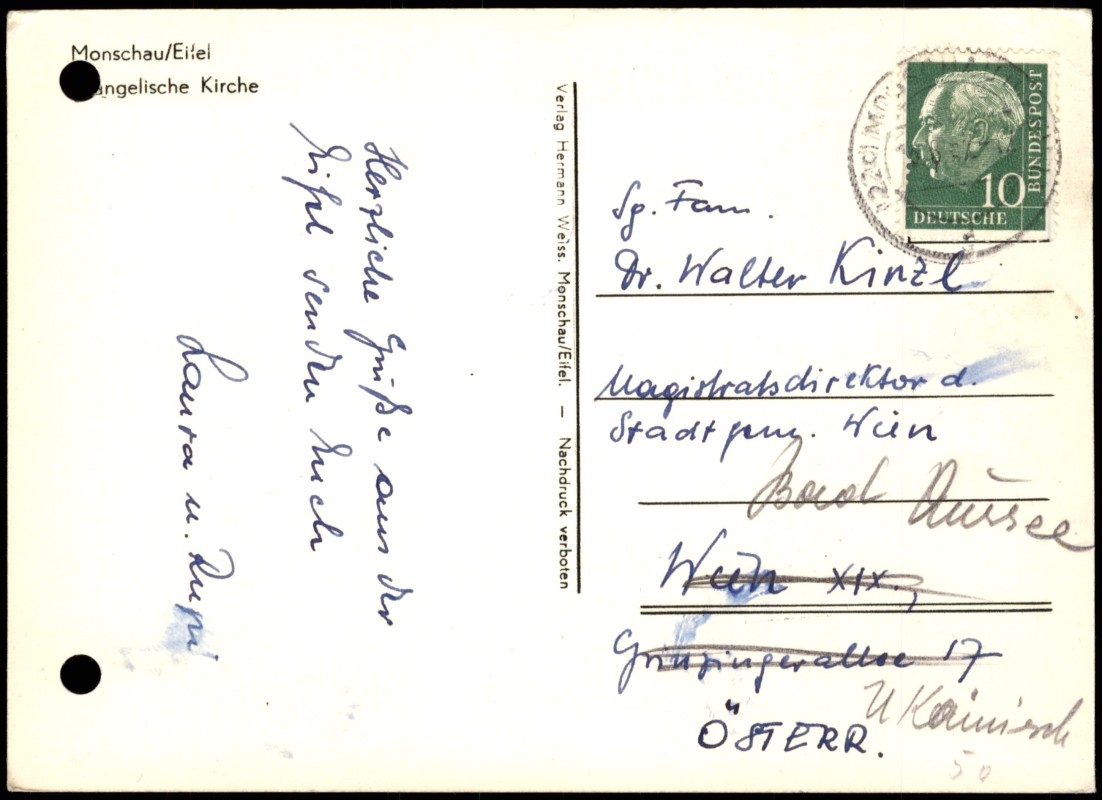 Monschau/Eifel
angelische Kirche
Herzliche Grüße aus der
Eifel senden Euch
Laura u. Rupi
Verlag Hermann Weiss. Monschau/Eifel. — Nachdruck verboten
BUNDESPOST
10
DEUTSCHE
Sg. Fam.
Dr. Walter Kinzl
Magistratsdirektor d.
Stadtgem. Wien
Bad Aussee
Wien XIX.,
Grinzingerallee 17
Kainisch
ÖSTERR.
50